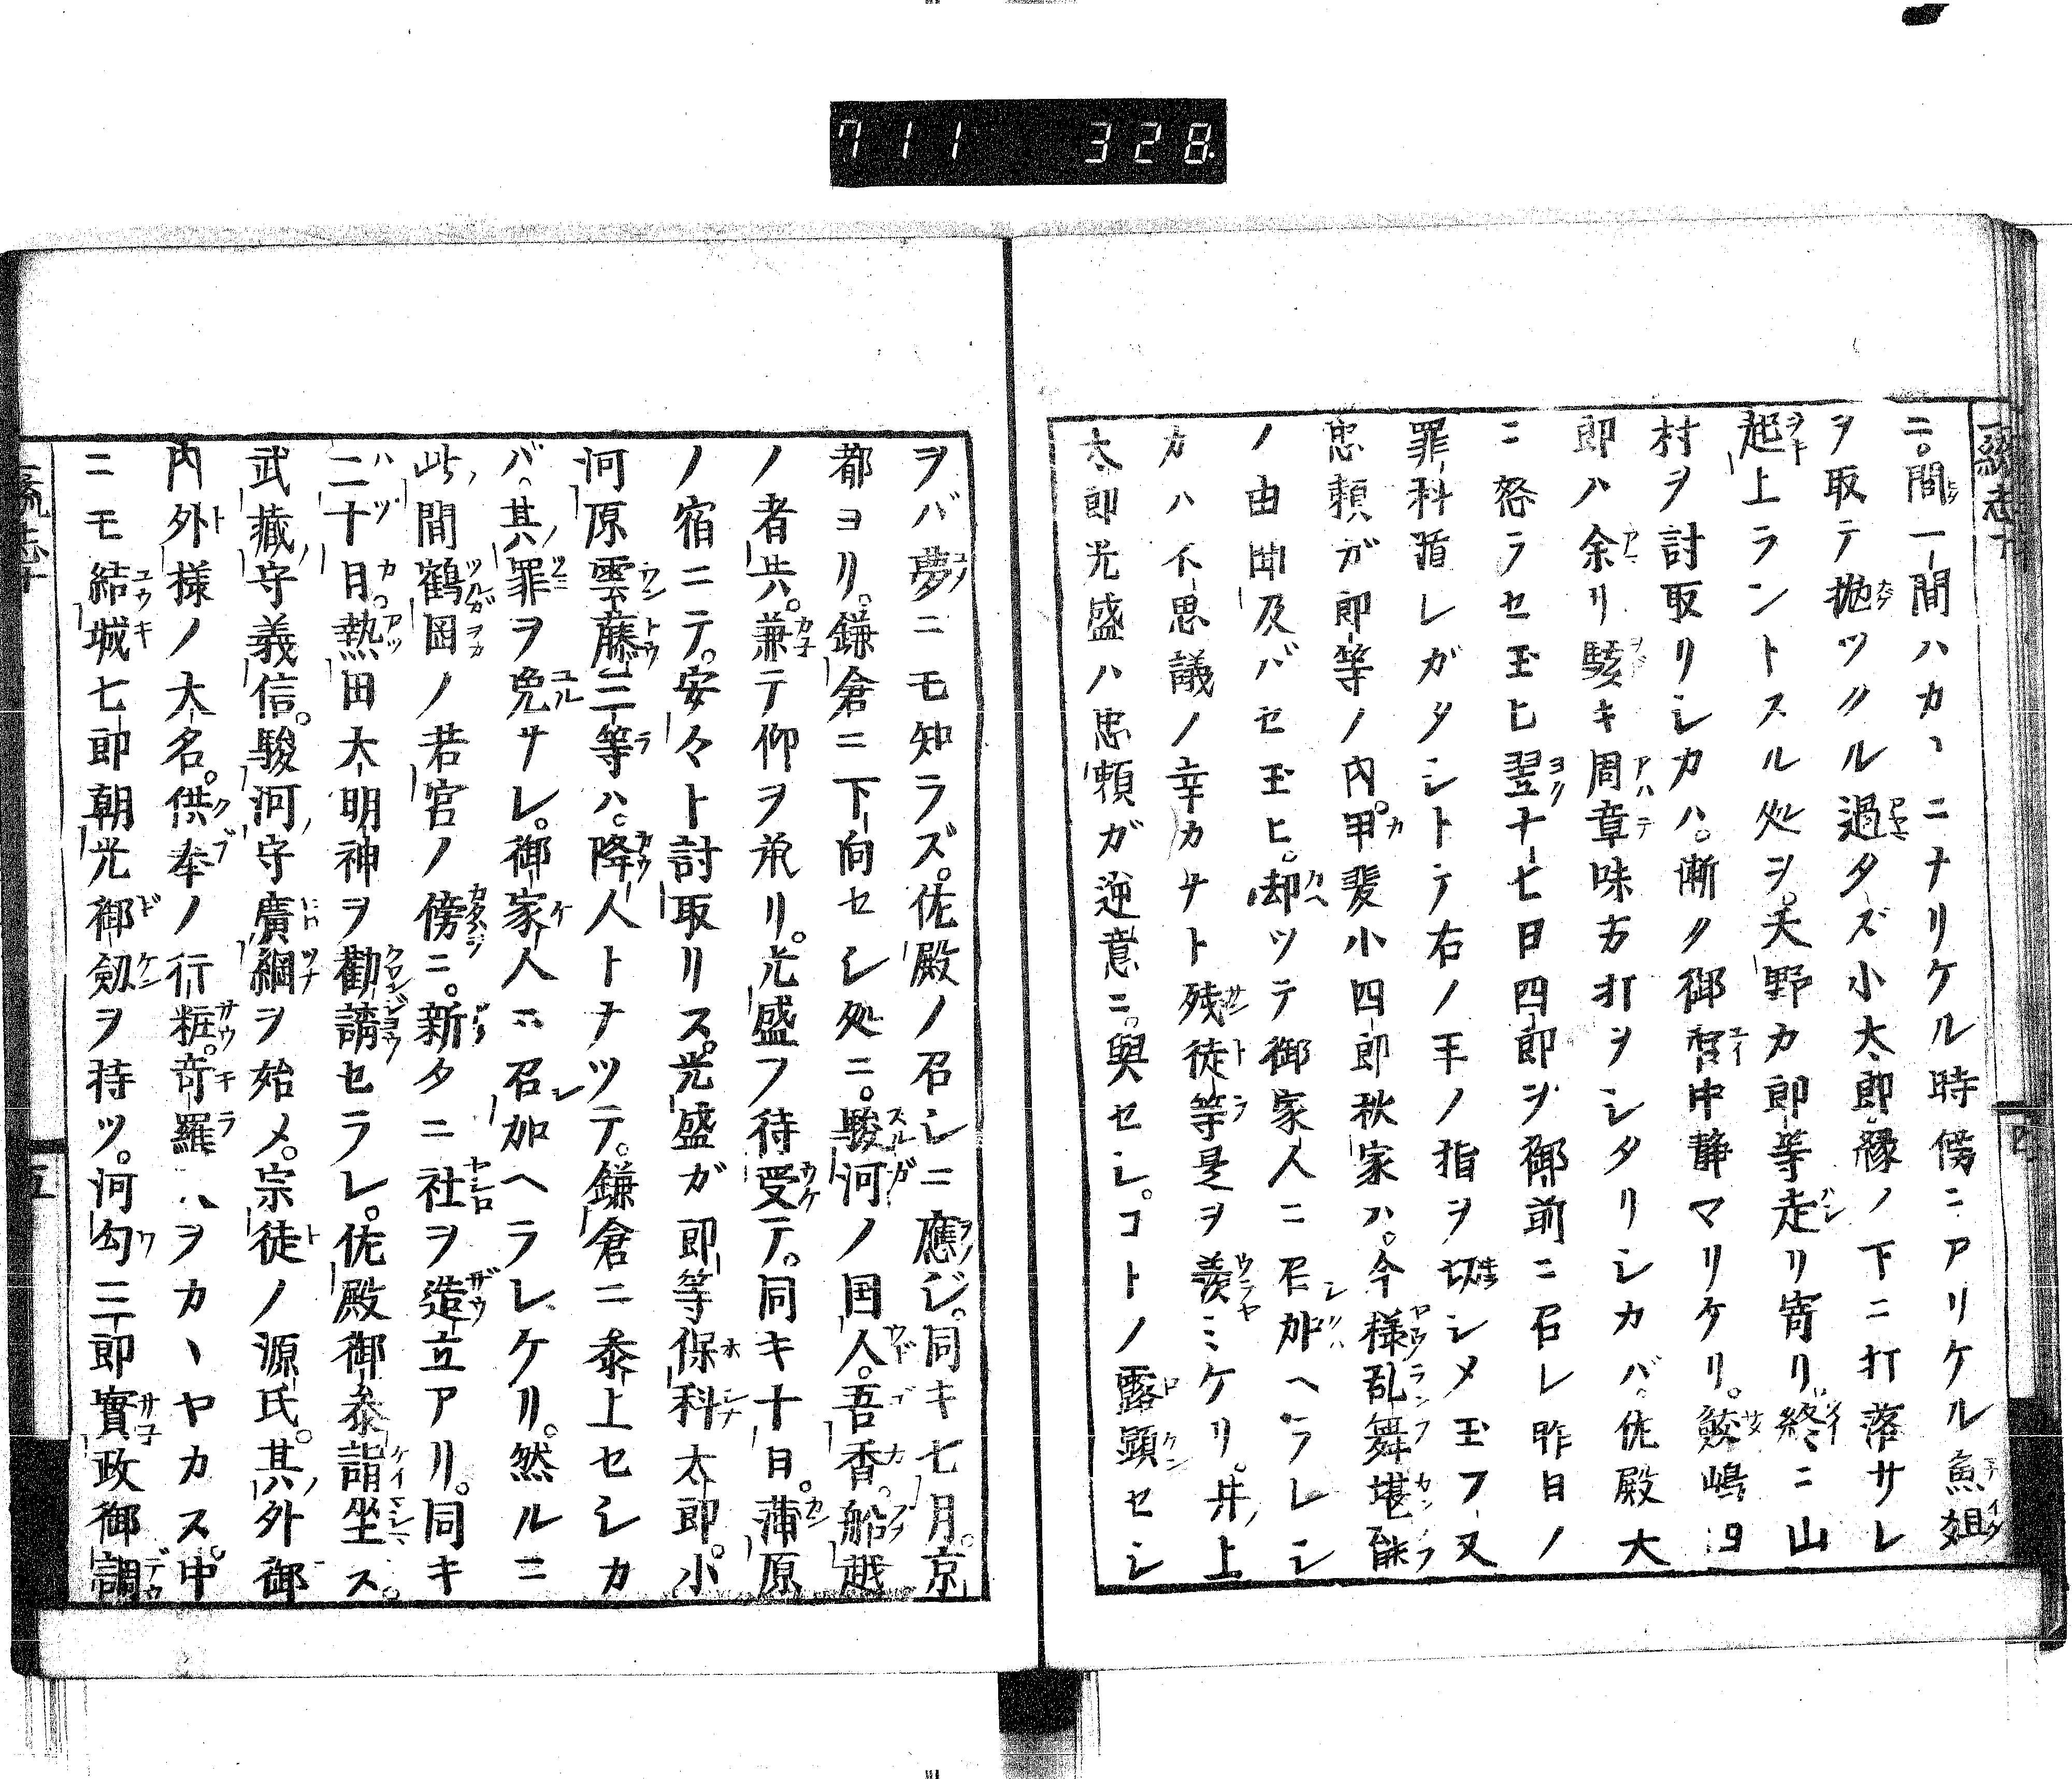 711 328
ニ。間一間ハカヽニナリケル時傍ニアリケル魚俎
ヲ取テ抛ツケル過タズ小太郎縁ノ下ニ打落サレ
起上ラントスル処ヲ。天野カ郎等走リ寄リ。終ニ山
村ヲ討取リシカハ。漸ク御営中静マリケリ。鮫嶋四
郎ハ余リ駭キ周章味方打ヲシタリシカバ。佐殿大
ニ怒ラセ玉ヒ翌十七日四郎ヲ御前ニ召レ昨日ノ
罪科遁レガタシトテ右ノ手ノ指ヲ切シメ玉フ又
忠頼ガ郎等ノ内。甲斐小四郎秋家ハ。今様乱舞堪能
ノ由聞及バセ玉ヒ。却ツテ御家人ニ召加ヘラレシ
カハ不思議ノ幸カナト残徒等是ヲ羨ミケリ。井上
太郎光盛ハ忠頼ガ逆意ニ。與セシ。コトノ露顕セシ
ヲバ夢ニモ知ラズ。佐殿ノ召シニ應ジ。同キ七月。京
都ヨリ。鎌倉ニ下向セシ処ニ。駿河ノ国人。吾香。船越
ノ者共。兼テ仰ヲ承リ。光盛ヲ待受テ。同キ十日。蒲原
ノ宿ニテ。安々ト討取リス。光盛ガ郎等保科太郎。小
河原雲藤三等ハ。降人トナツテ。鎌倉ニ参上セシカ
バ。其罪ヲ免サレ。御家人ニ召加ヘラレケリ。然ルニ
此間鶴岡ノ若宮ノ傍ニ。新タニ社ヲ造立アリ。同キ
二十日。熱田大明神ヲ勸請セラレ。佐殿御参詣坐ス。
武藏守義信。駿河守廣綱ヲ始メ。宗徒ノ源氏。其外御
内外様ノ大名。供奉ノ行粧。奇羅ハヲカヽヤカス。中
ニモ結城七郎朝光御劔ヲ持ツ。河勾三郎實政御調